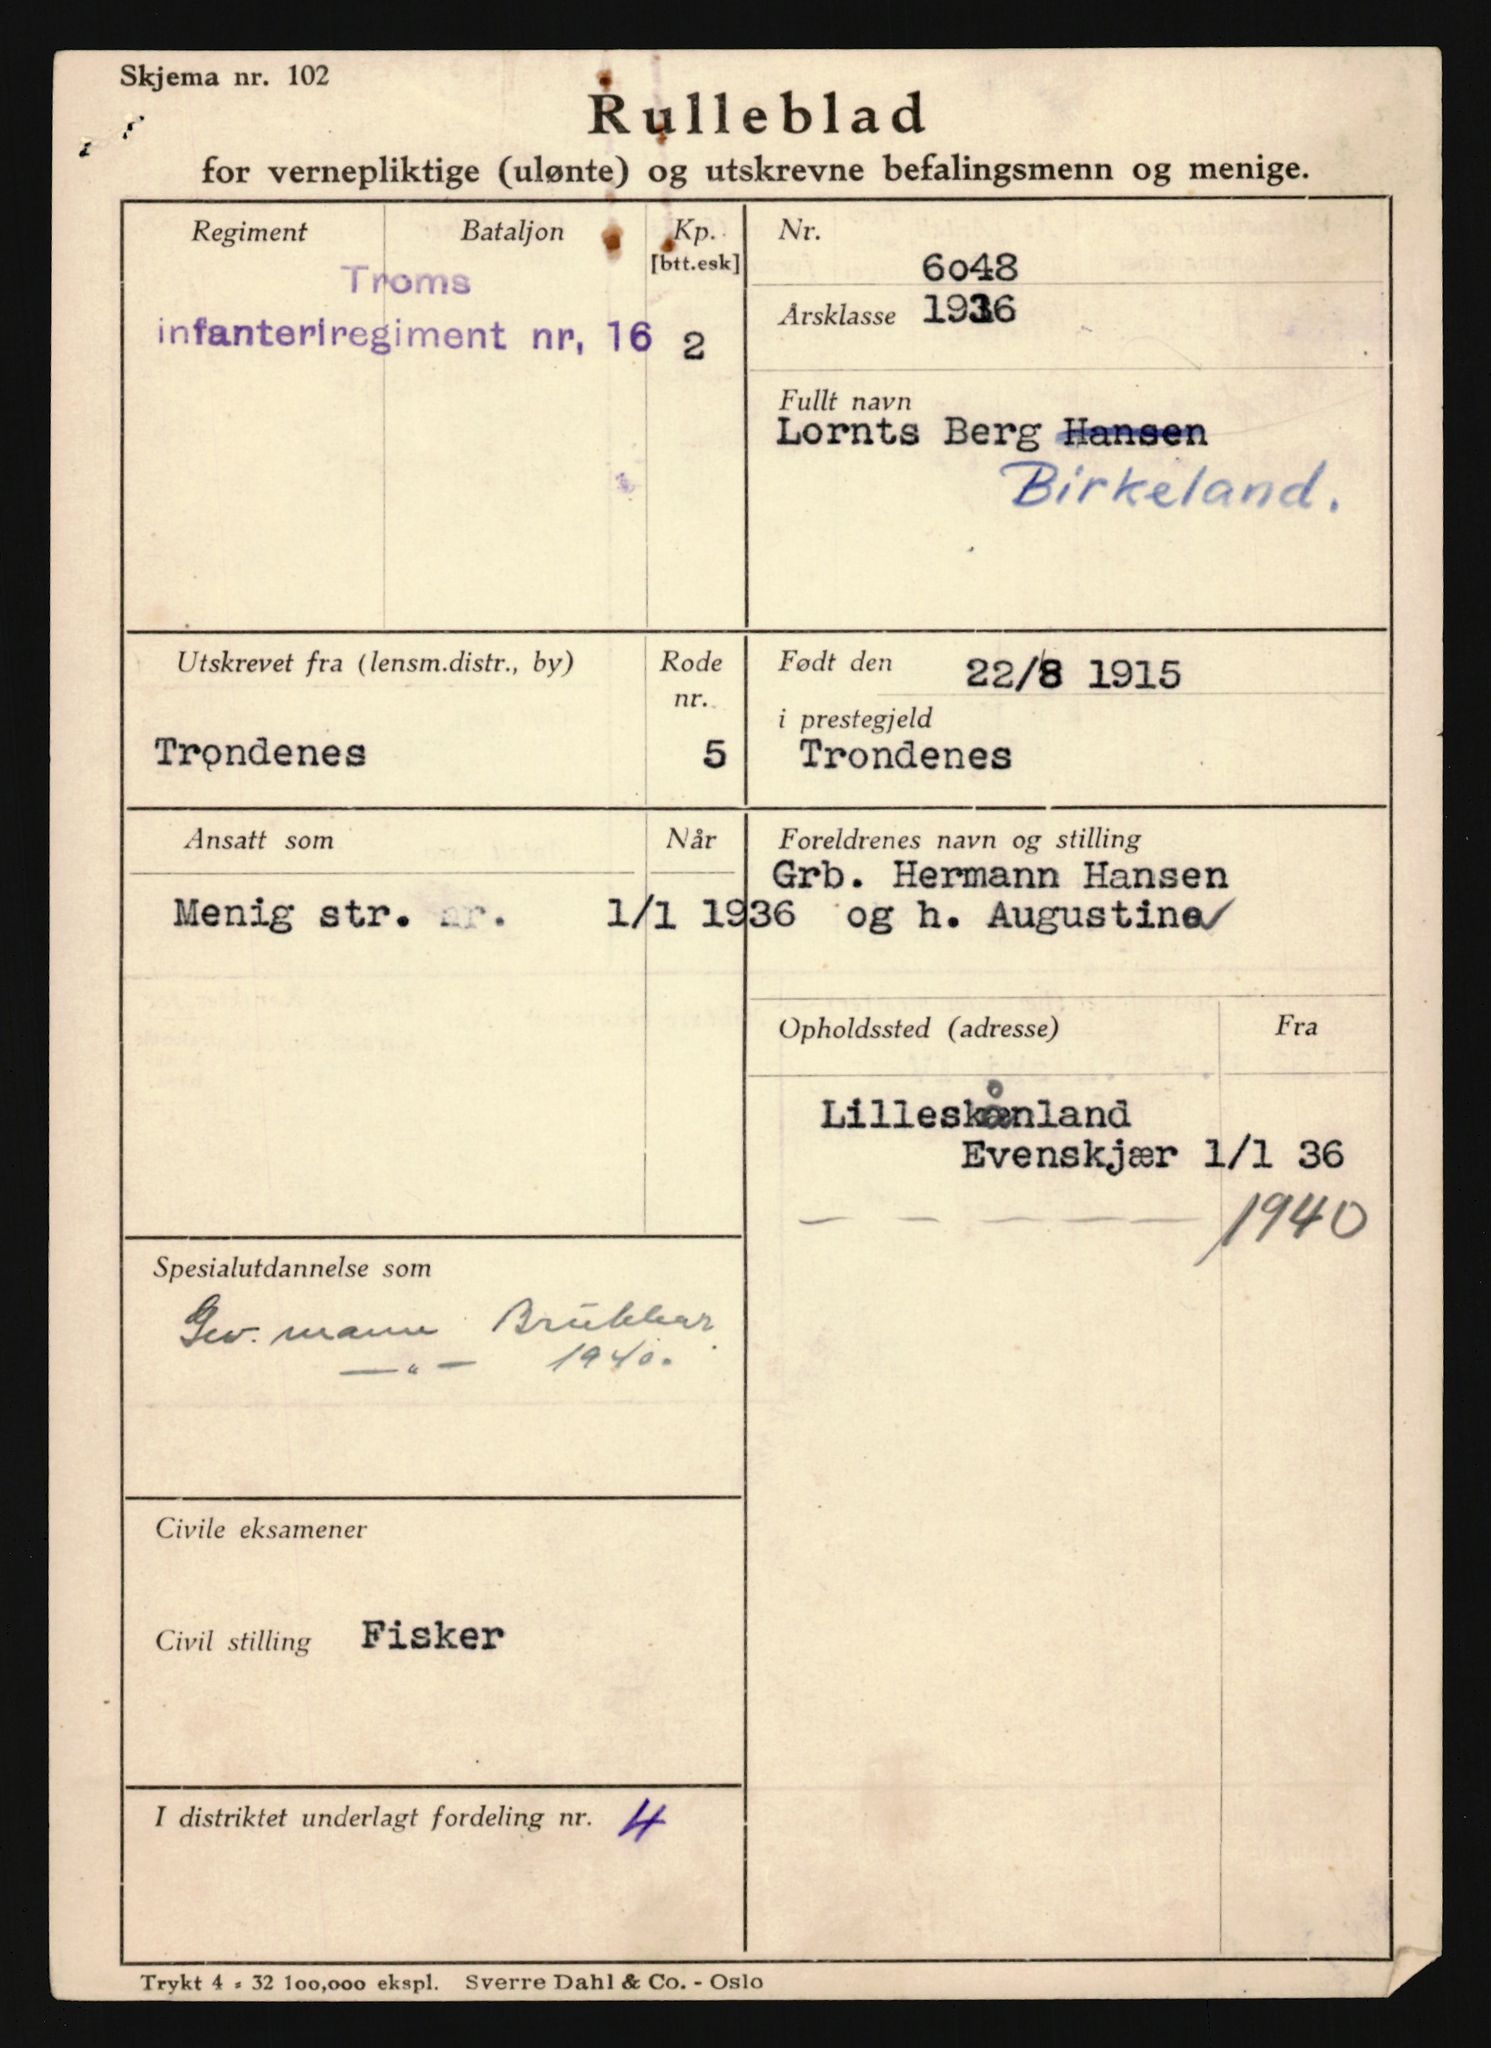 Skjema nr. 102
Rulleblad
for vernepliktige (ulønte) og utskrevne befalingsmenn og menige.
Regiment Bataljon Kp.
[btt.esk]
Troms
infanteriregiment nr, 16 2
Nr.
6o48
Årsklasse 1936
Fullt navn
Lornts Berg Hansen
Birkeland.
Utskrevet fra (lensm.distr., by) Rode
nr.
Trondenes 5
Født den 22/8 1915
i prestegjeld
Trondenes
Ansatt som Når
Menig str. nr. 1/1 1936
Foreldrenes navn og stilling
Grb. Hermann Hansen
og h. Augustine
Opholdssted (adresse) Fra
Lilleskånland
Evenskjær 1/1 36
— — — — — 1940
Spesialutdannelse som
Gev. mann Brukbar
— " — 1940.
Civile eksamener
Civil stilling Fisker
I distriktet underlagt fordeling nr. 4
Trykt 4 - 32 100,000 ekspl. Sverre Dahl & Co. - Oslo